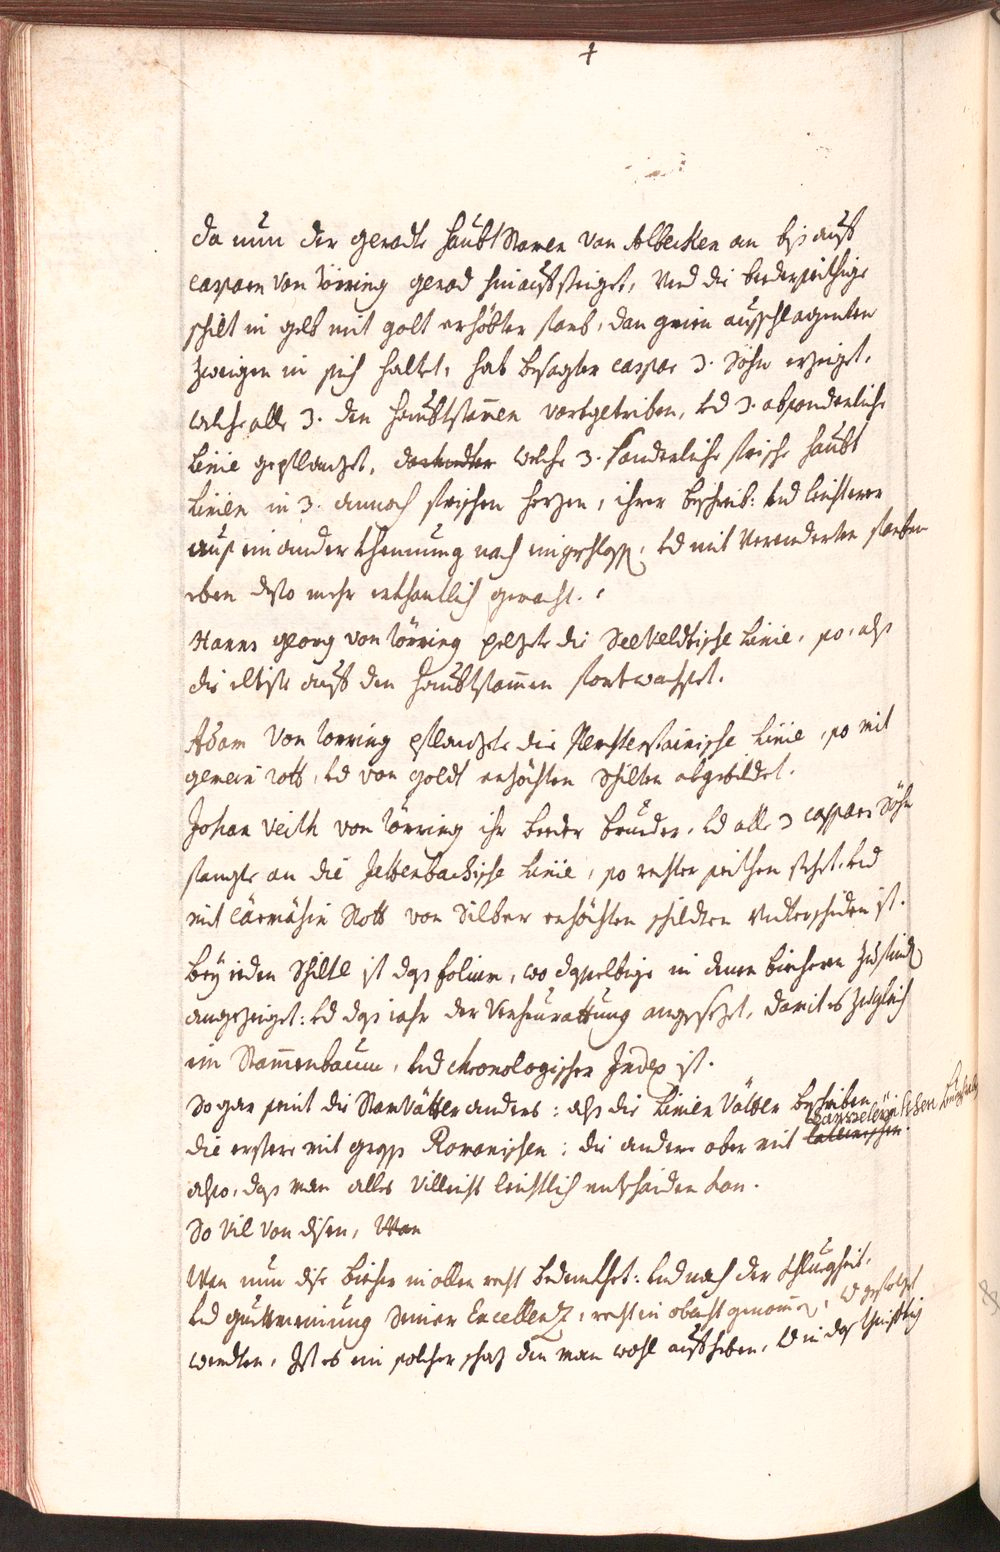 da nun der geradte Haubt Stamen von Albecken an bis auf
casparn von Törring gerad hinauf steiget, vnd die beederseithige
schilt in gelb mit golt erhöbter farb, dan grien ausschlagenten
zweigen in sich haltet, hat besagter caspar 3. Söhn erzeiget,
welche alle 3. den haubtstamen vortgetriben, vnd 3. absonderliche
Linie gepflanzet, welche 3. sonderliche frische haubt
Linien in 3. annoch frischen herzen, ihrer beschreib: vnd leichterer
aus ein ander khennung nach eingeschlossen, vnd mit veränderten farben
eben desto mehr erkhantlich gemacht.
Hanns georg von törring pelzete die Seeveldtische Linie, so, als
die eltiste auf den haubtstamen fortwachset.
Adam von törring pflanzete die Stainische Linie, so mit
gemein rott, vnd von goldt erhöchten Schilten abgebildet.
Johan Veith von törring ihr beeder bruder, vnd alle 3 caspars Söhn
fangte an die Jettenbachische Linie, so rechter seithen stehet, vnd
mit cärmäsin Rott von Silber erhöchten schildten vnterschiden ist.
bey ieden Schiltl ist das folium, wo dasselbige in denen biechern zu finden
angezeiget: vnd das iahr der Verheurattung angesezet, damit es zugleich
ein Stammenbaum, vnd chronologischer Index ist.
So gar seint die StamVätter anders: als die Linien Vätter beschriben
die erstere mit gross Romanischen: die andere aber mit lateinischen canzeleyischen
also, das man alles villeicht leichtlich entschaiden kan.
So vil von disen, Wan
Wan nun dise biecher in allen recht bedeuthet: vnd nach der khlugheit,
vnd guettmeinung Seiner Excellenz, recht in obacht genommen, vnd gestelzet
werdten, Ist es ein solcher schaz den man wohl aufheben, vnd in das